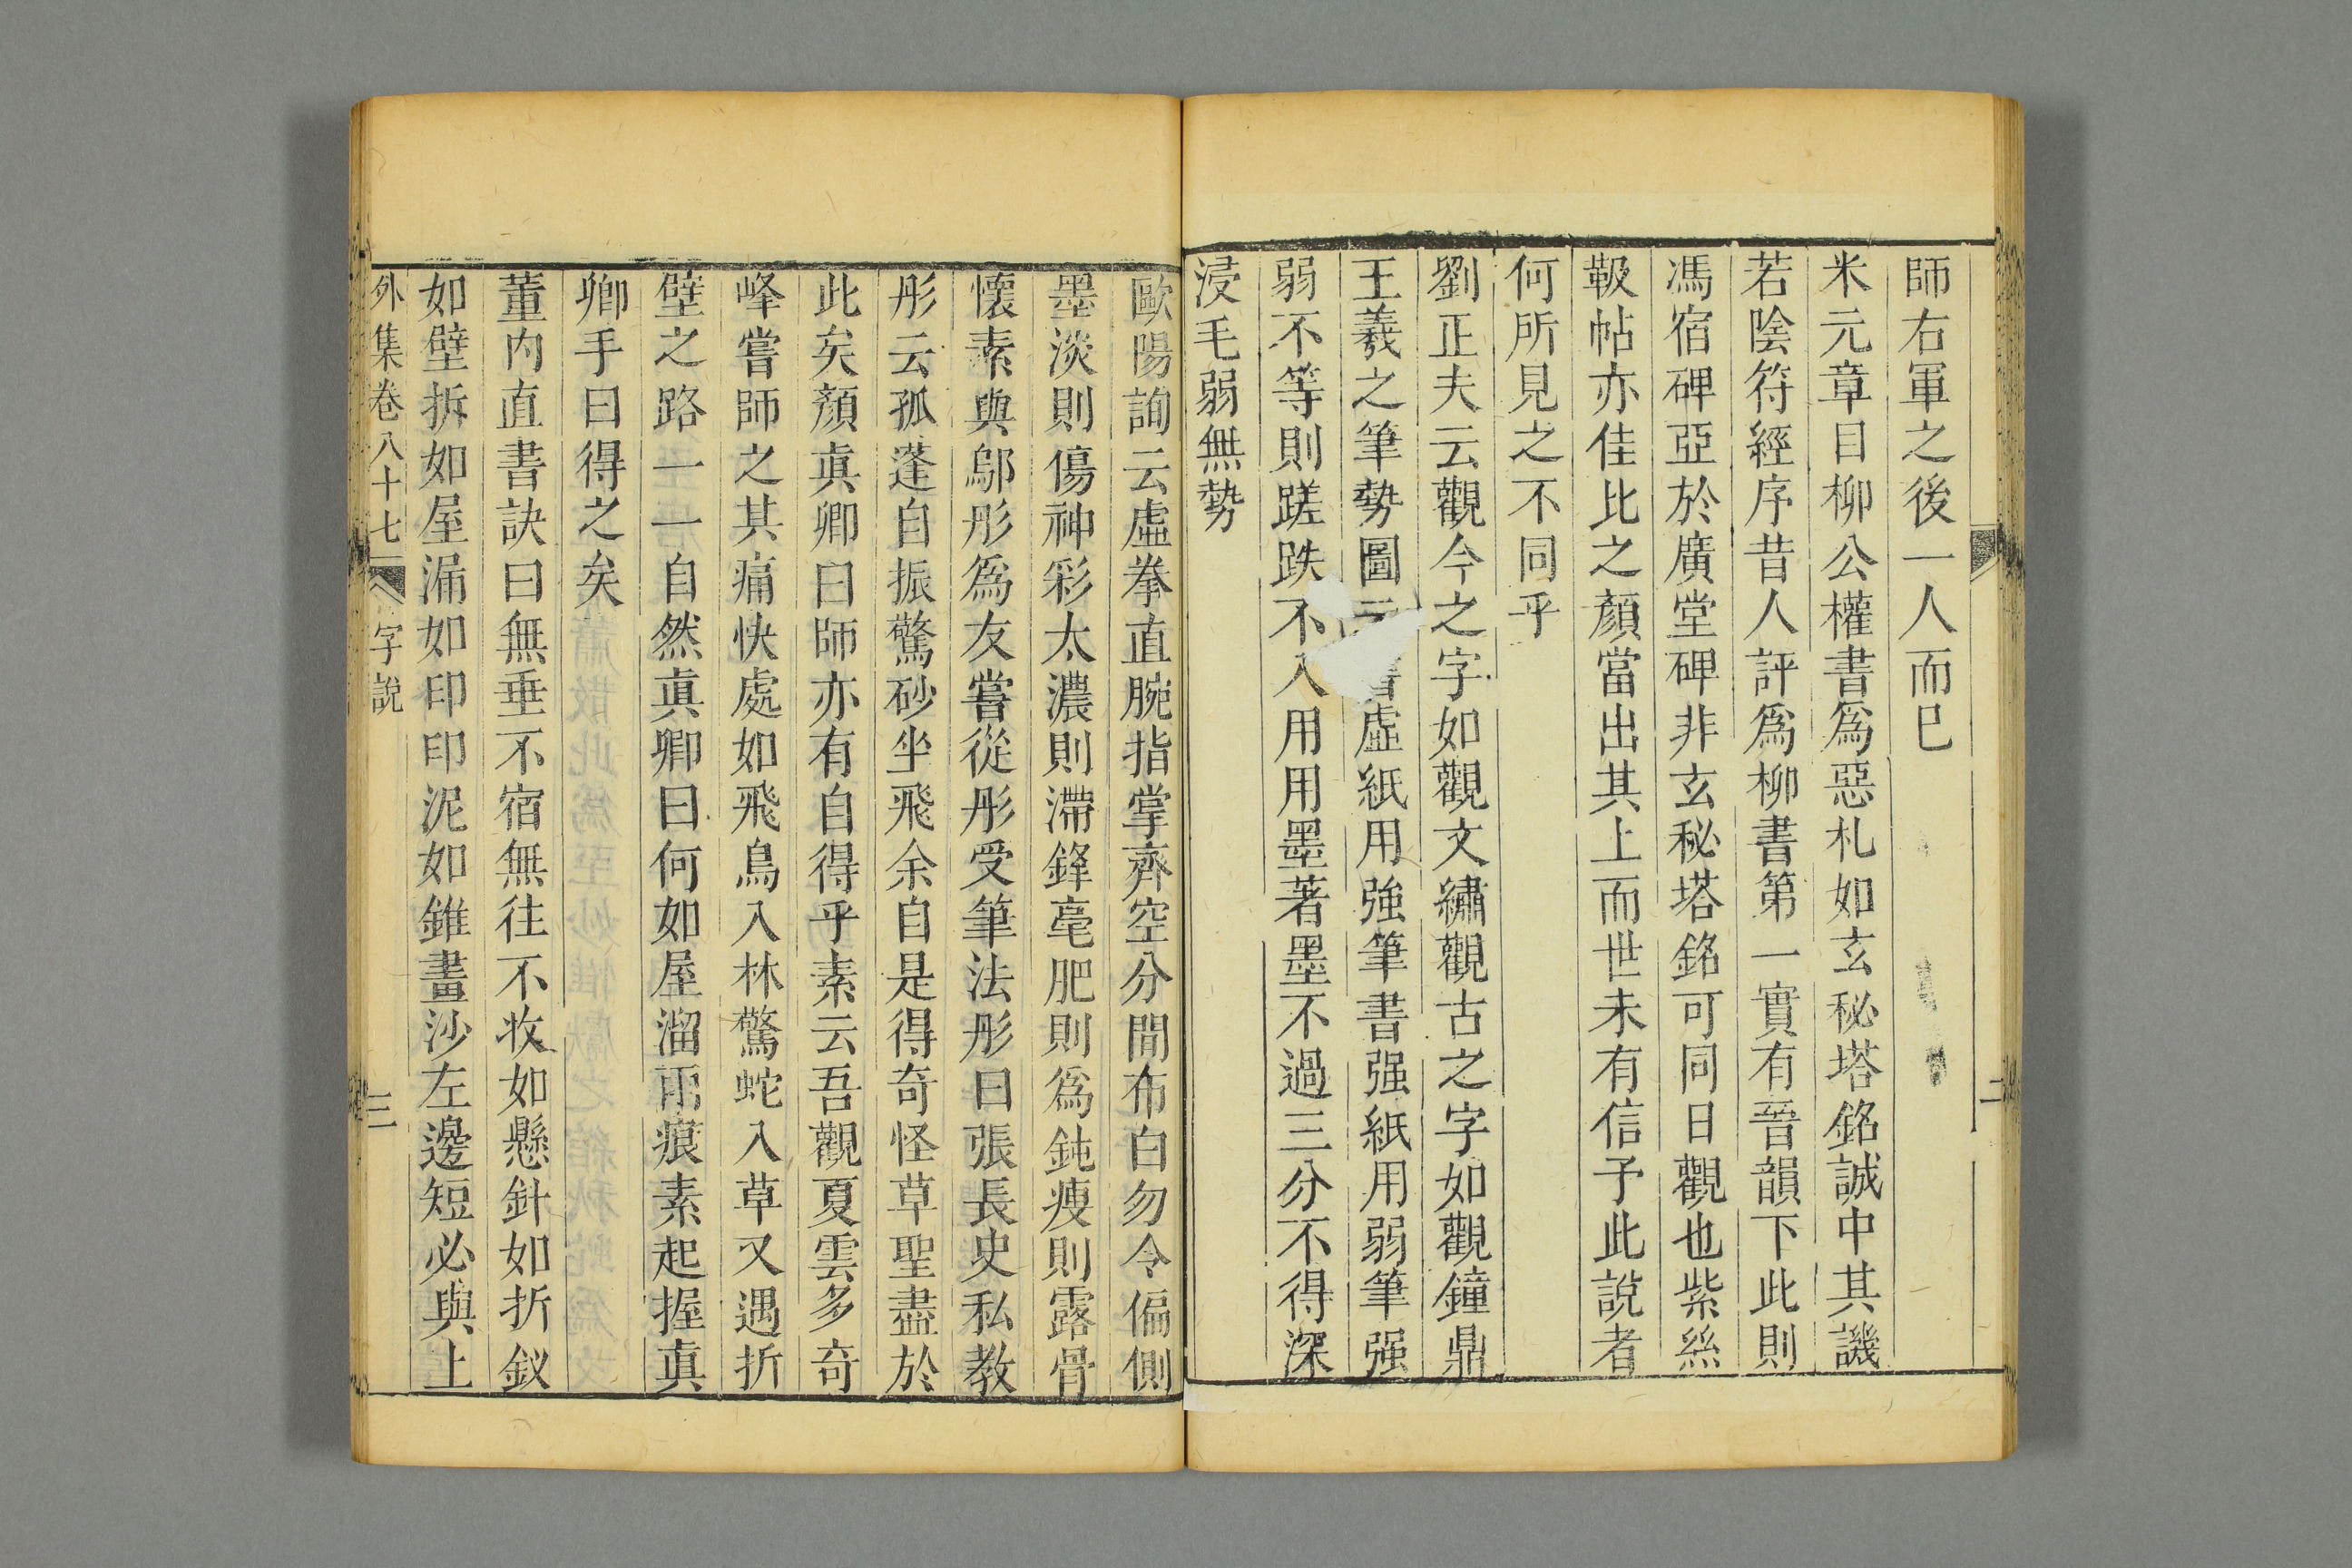 師右軍之後一人而巳
米元章目柳公權書爲惡札如玄秘塔銘誠中其譏
若陰符經序昔人評爲柳書第一實有晉韻下此則
馮宿碑亞於廣堂碑非玄秘塔銘可同日觀也紫絲
靸帖亦佳比之顏當出其上而世未有信予此說者
何所見之不同乎
劉正夫云觀今之字如觀文繡觀古之字如觀鐘鼎
王羲之筆勢圖云書虛紙用強筆書强紙用弱筆强
弱不等則蹉跌不入用用墨著墨不過三分不得深
浸毛弱無勢
二
歐陽詢云虛拳直腕指掌齊空分間布白勿令偏側
墨淡則傷神彩太濃則滯鋒毫肥則爲鈍瘦則露骨
懷素與鄔彤爲友嘗從彤受筆法彤曰張長史私教
彤云孤蓬自振驚砂坐飛余自是得奇怪草聖盡於
此矣顏眞卿曰師亦有自得乎素云吾觀夏雲多奇
峰嘗師之其痛快處如飛鳥入林驚蛇入草又遇折
壁之路一一自然眞卿曰何如屋溜雨痕素起握眞
卿手曰得之矣
董內直書訣曰無垂不宿無往不收如懸針如折釵
如壁拆如屋漏如印印泥如錐畫沙左邊短必與上
外集卷八十七 字說 三